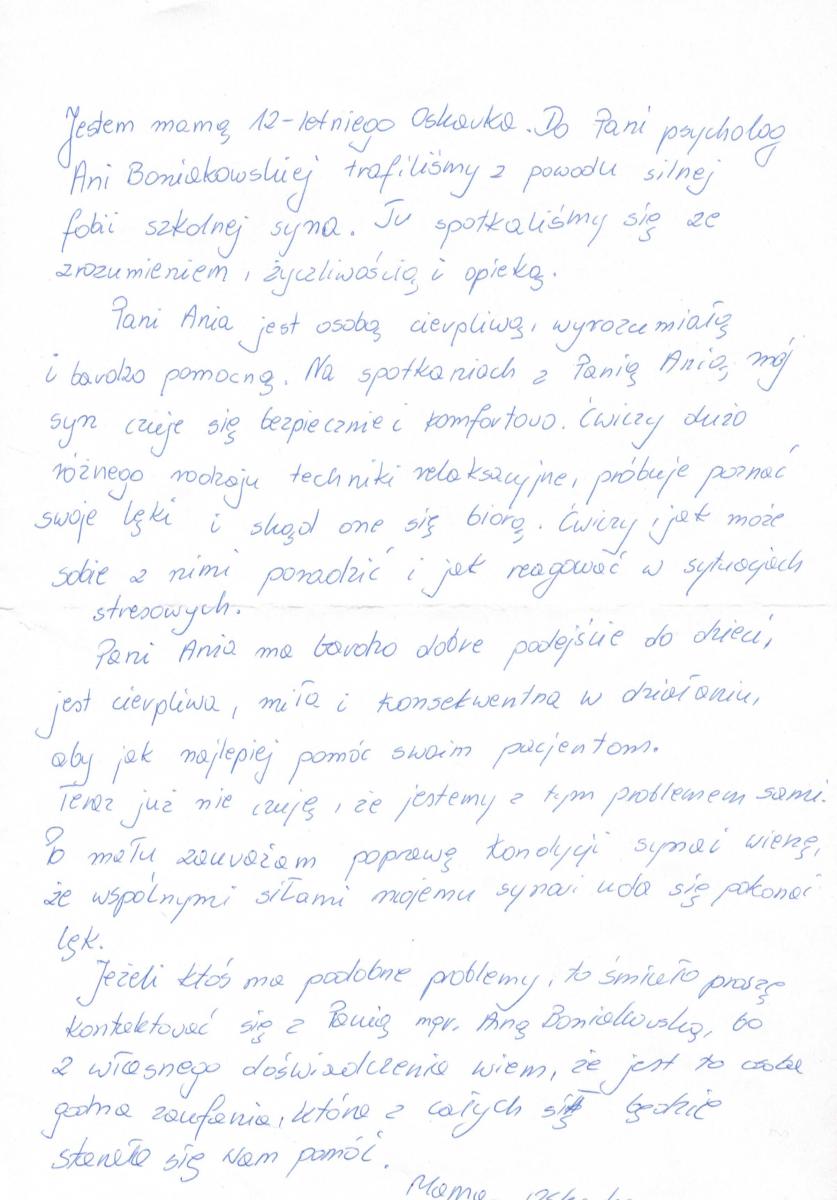 Jestem mamą 12-letniego Oskarka. Do Pani psycholog
Ani Boniakowskiej trafiliśmy z powodu silnej
fobii szkolnej syna. Tu spotkaliśmy się ze
zrozumieniem, życzliwością i opieką.
Pani Ania jest osobą cierpliwą, wyrozumiałą
i bardzo pomocną. Na spotkaniach z Panią Anią, mój
syn czuje się bezpiecznie i komfortowo. Ćwiczy dużo
różnego rodzaju techniki relaksacyjne, próbuje poznać
swoje lęki i skąd one się biorą. Ćwiczy i jak może
sobie z nimi poradzić i jak reagować w sytuacjach
stresowych.
Pani Ania ma bardzo dobre podejście do dzieci,
jest cierpliwa, miła i konsekwentna w działaniu,
aby jak najlepiej pomóc swoim pacjentom.
Teraz już nie czuję, że jestemy z tym problemem sami.
Po mału zauważam poprawę kondycji syna i wierzę,
że wspólnymi siłami mojemu synowi uda się pokonać
lęk.
Jeżeli ktoś ma podobne problemy, to śmiało proszę
kontaktować się z Panią mgr. Aną Boniakowską, bo
z własnego doświadczenia wiem, że jest to osoba
godna zaufania, która z całych sił będzie
starała się Wam pomóc.
Mama